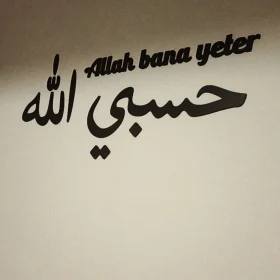 Allah bana yeter
حسبي الله